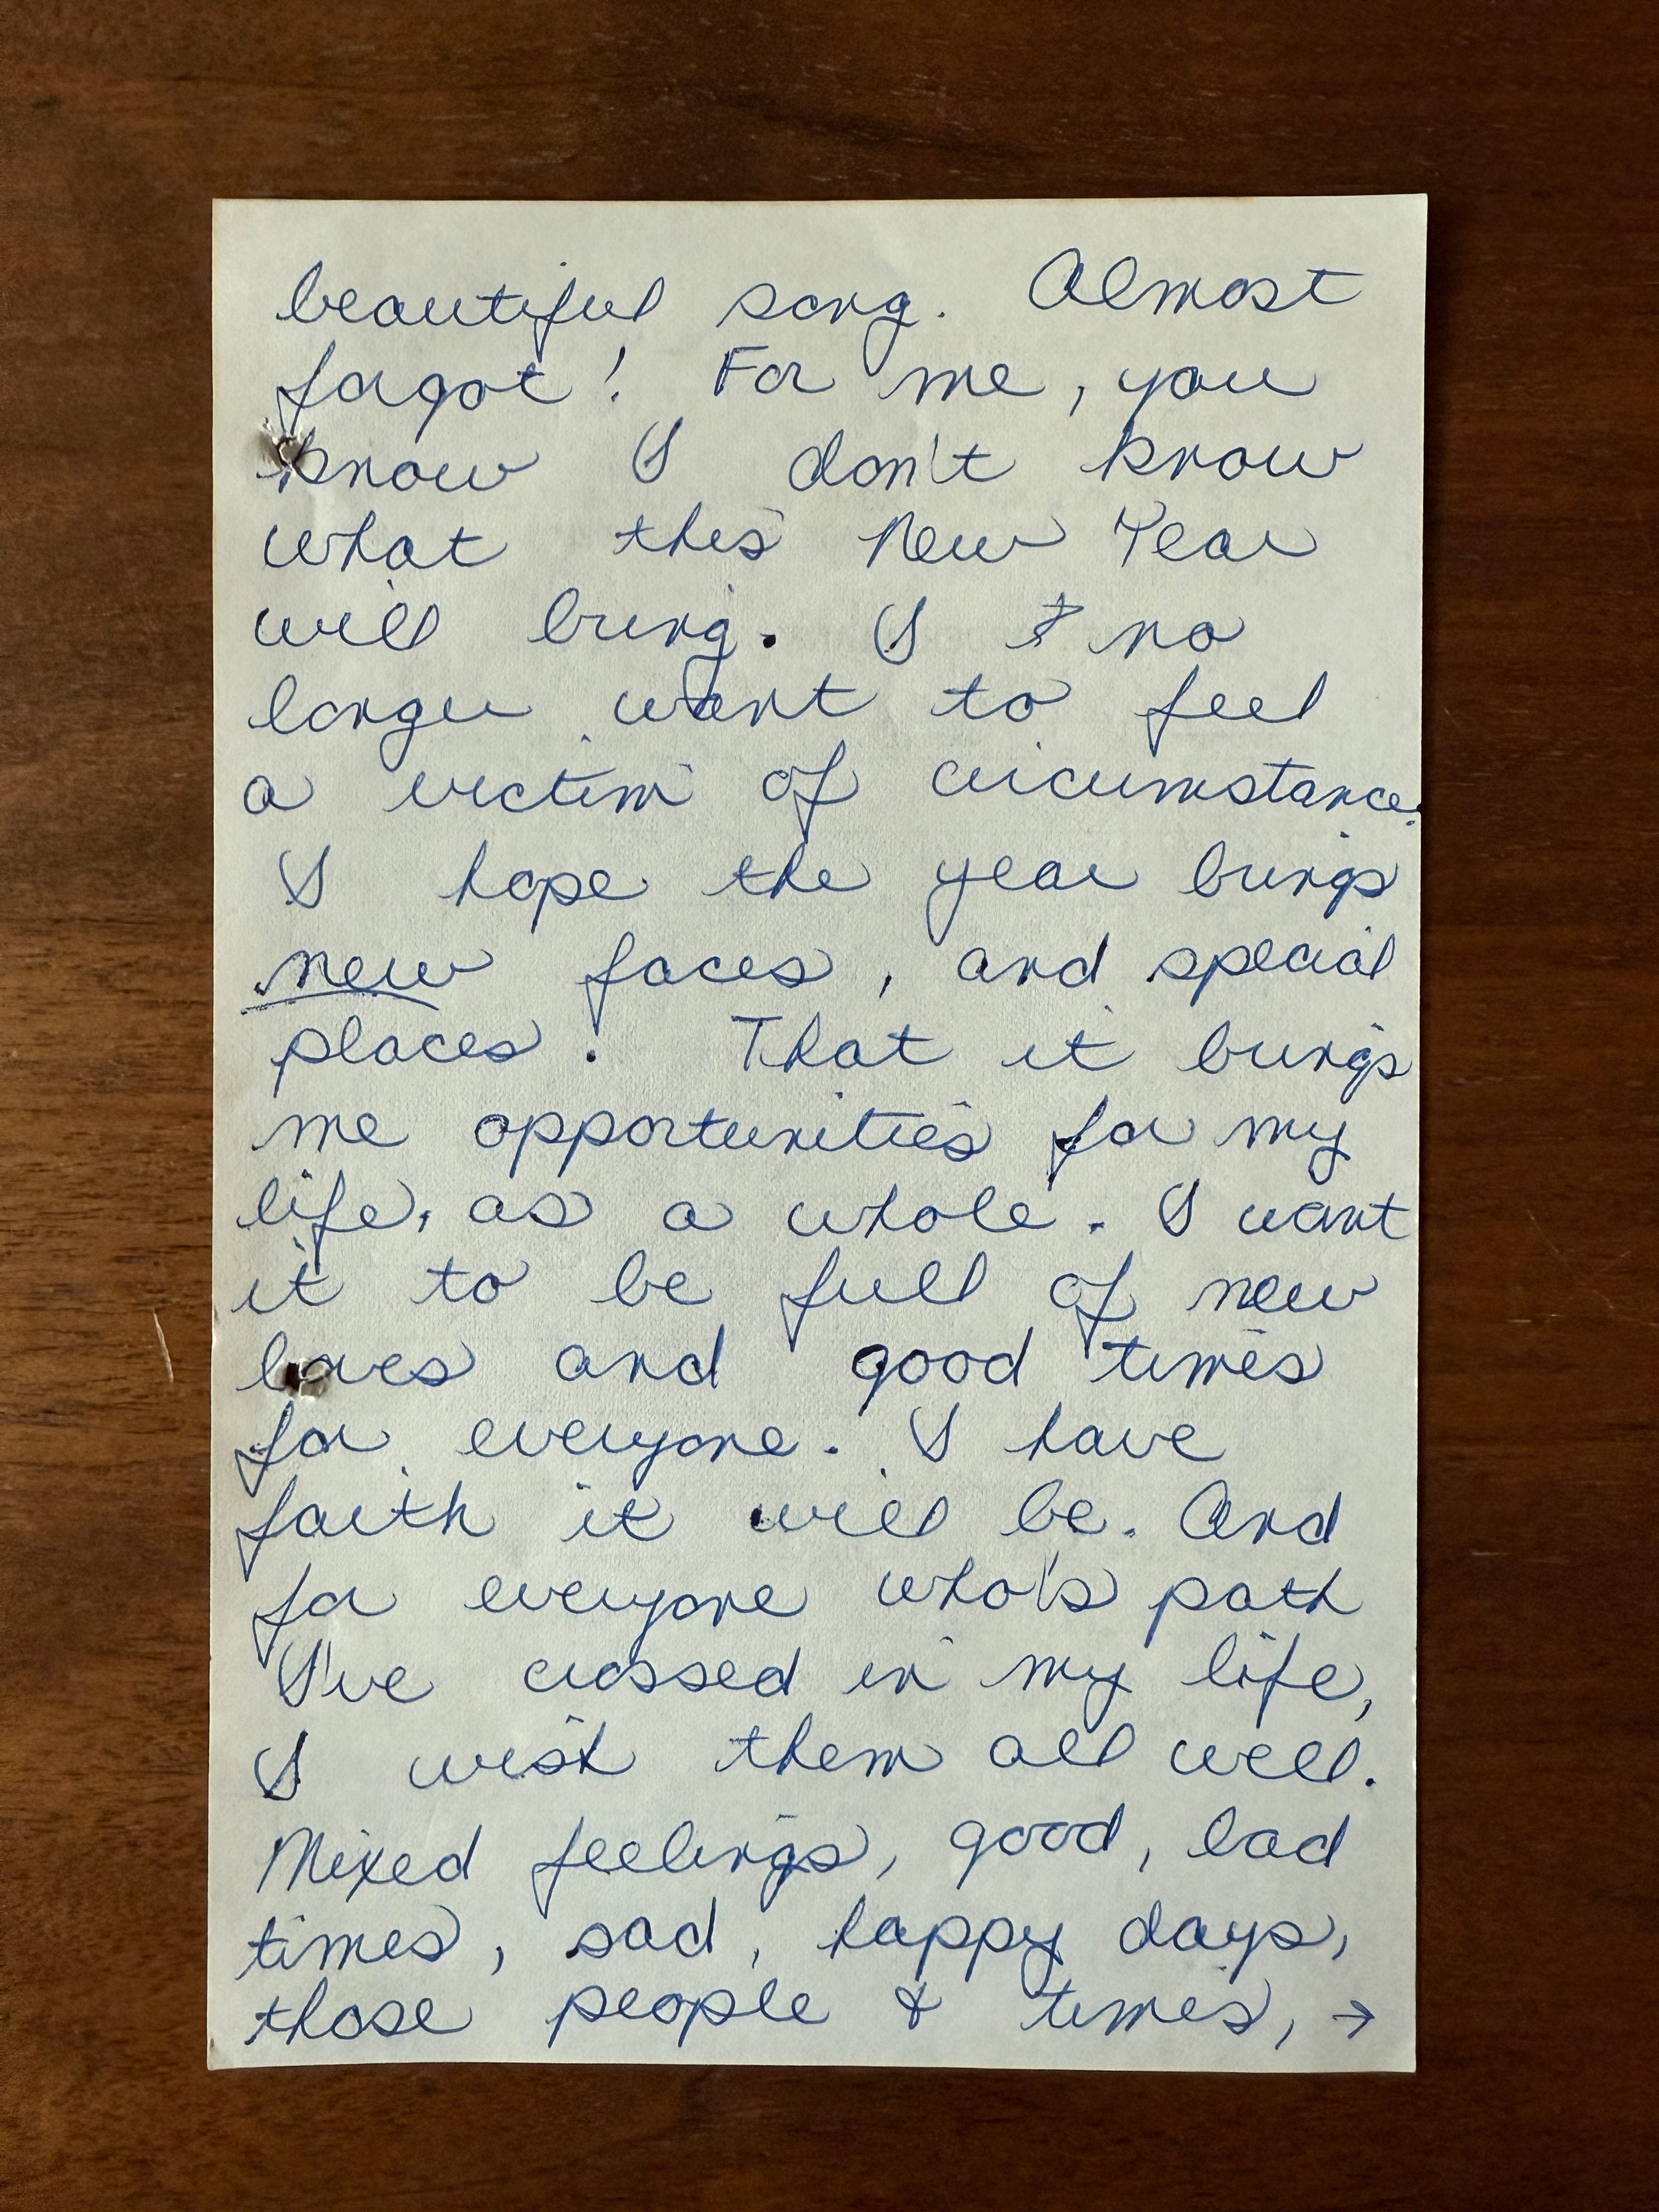 beautiful song. Almost
forgot! For me, you
know I don't know
what this New Year
will bring. I no
longer want to feel
a victim of circumstance.
I hope the year brings
new faces, and special
places. That it brings
me opportunities for my
life, as a whole. I want
it to be full of new
loves and good times
for everyone. I have
faith it will be. And
for everyone who's path
I've crossed in my life,
I wish them all well.
Mixed feelings, good, bad
times, sad, happy days,
those people & times, →